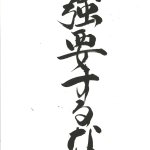 強要するな